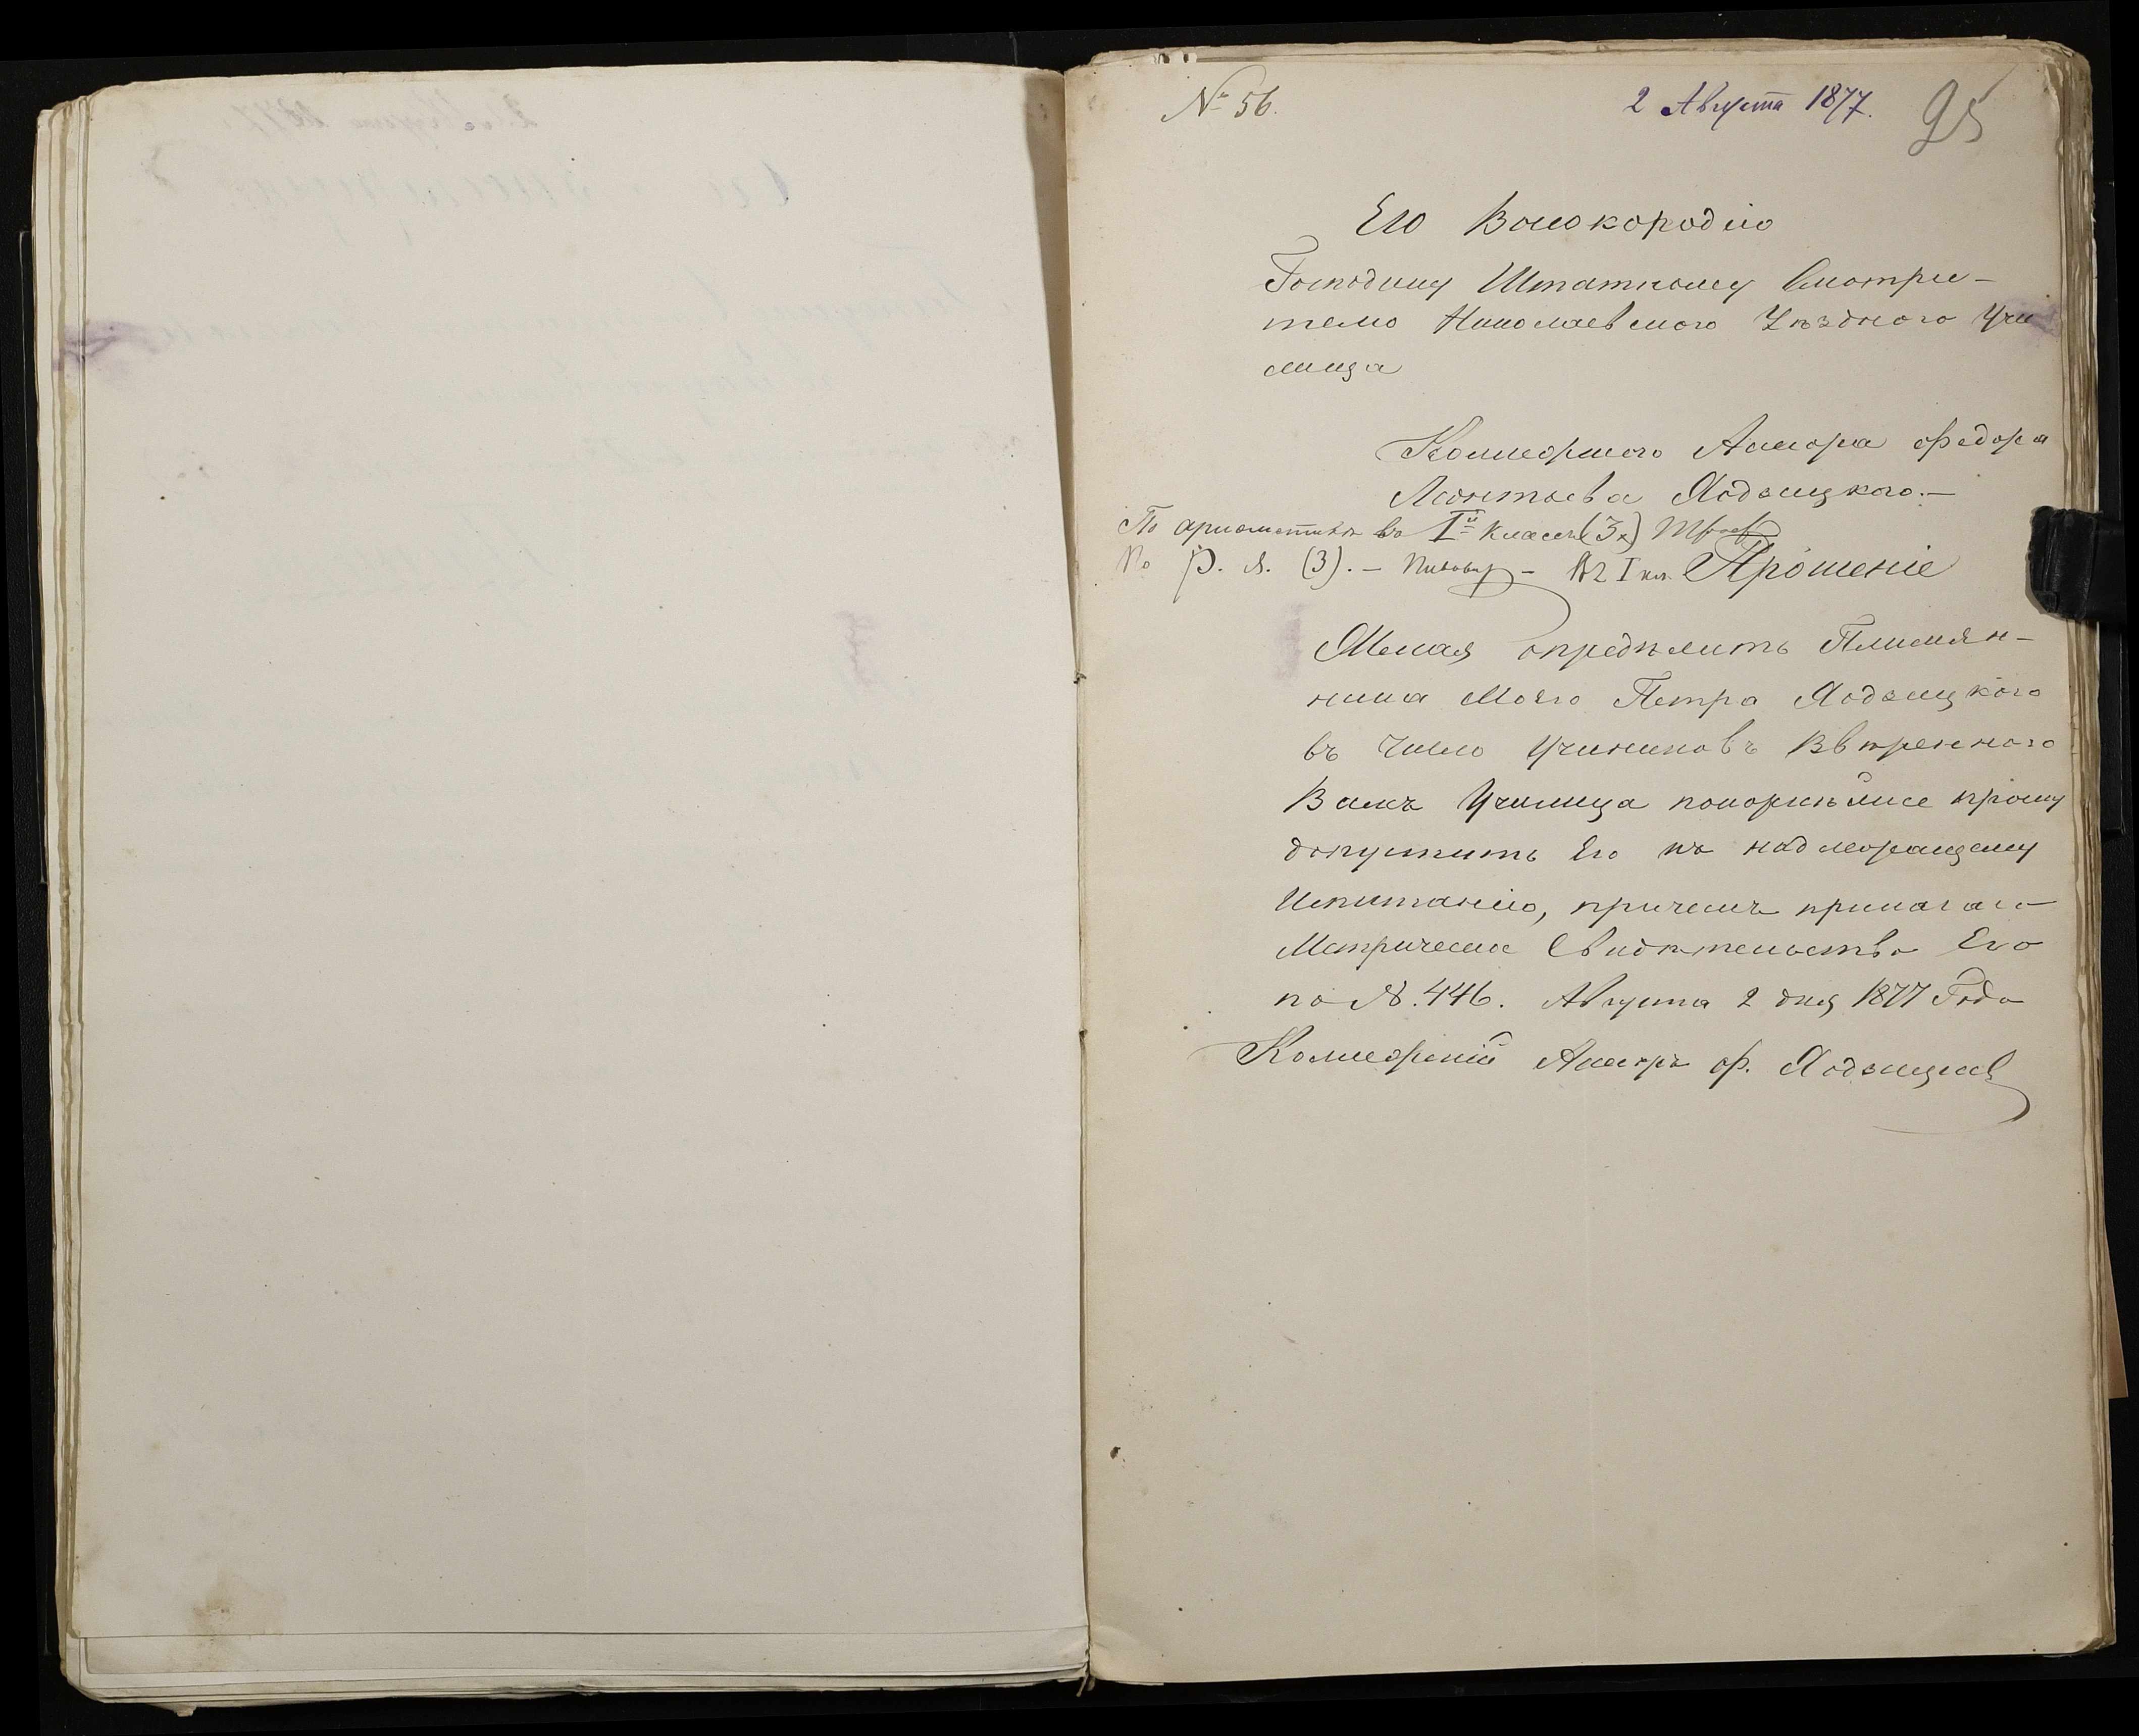 № 56.
2 Августа 1877.
95
Его Высокородію
Господину Штатному Смотри-
телю Николаевского Уѣздного Учи
лища
Коллежского Асесора Федора
Леонтьева Лодзицкого.—
По ариѳметикѣ въ Iй классъ (3х)
По Р. Я. (3). — — Въ I кл. Прошеніе
Желая опредѣлить Племян-
ника Моего Петра Лодзицкого
въ число Учениковъ Ввѣренного
Вамъ Училища покорнѣйше прошу
допустить Его къ надлежащему
Испитанію, причемъ прилагаю
Метрическое Свидѣтельство Его
по №. 446. Августа 2 дня 1877 Года
Коллежскій Асесоръ Ф. Лодзицкій